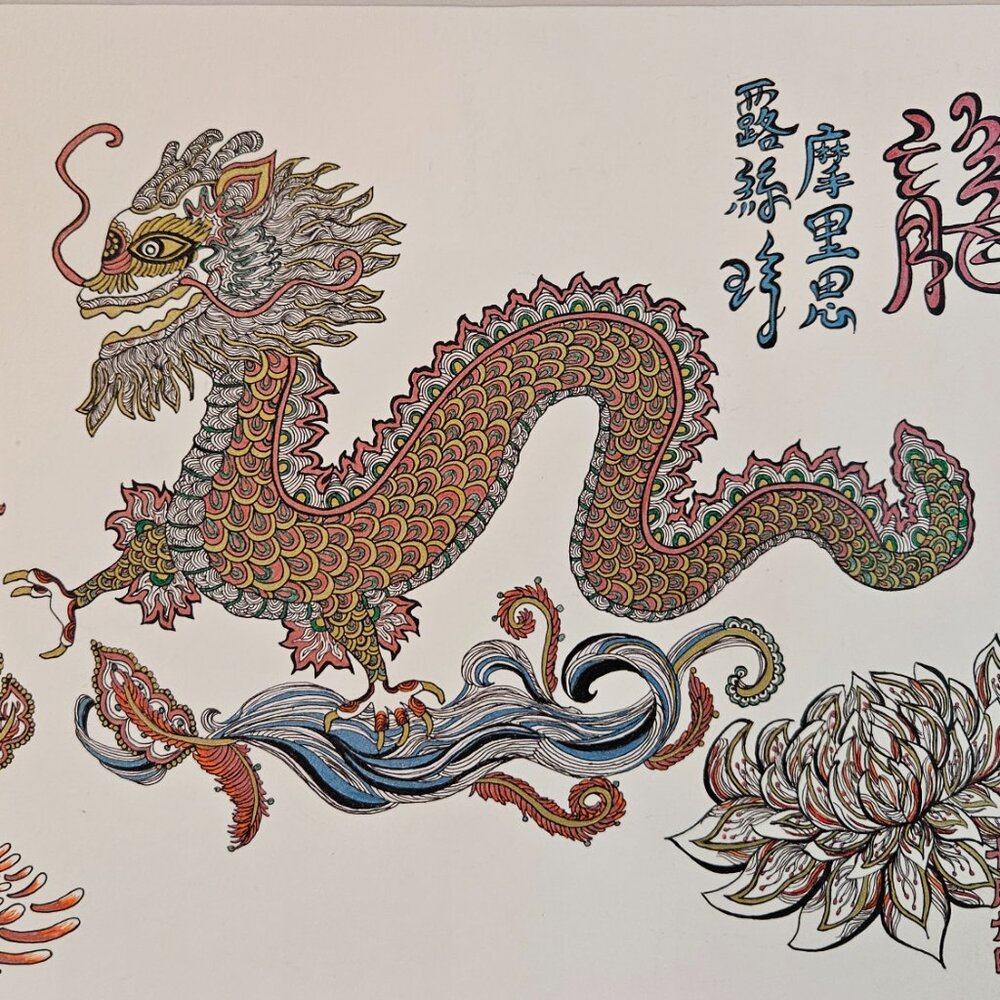 龍
摩里思
露絲珍